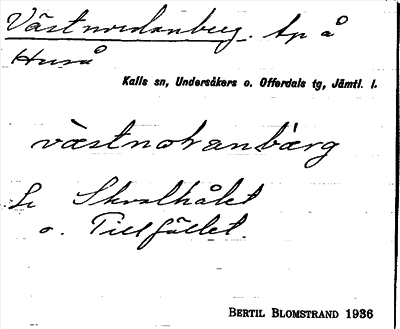 Västnordanberg. bp å
Huså
Kalls sn, Undersåkers o. Offerdals tg, Jämtl. l.
västnoranbärg
Se Skvalhålet
o. Tillfället.
BERTIL BLOMSTRAND 1936